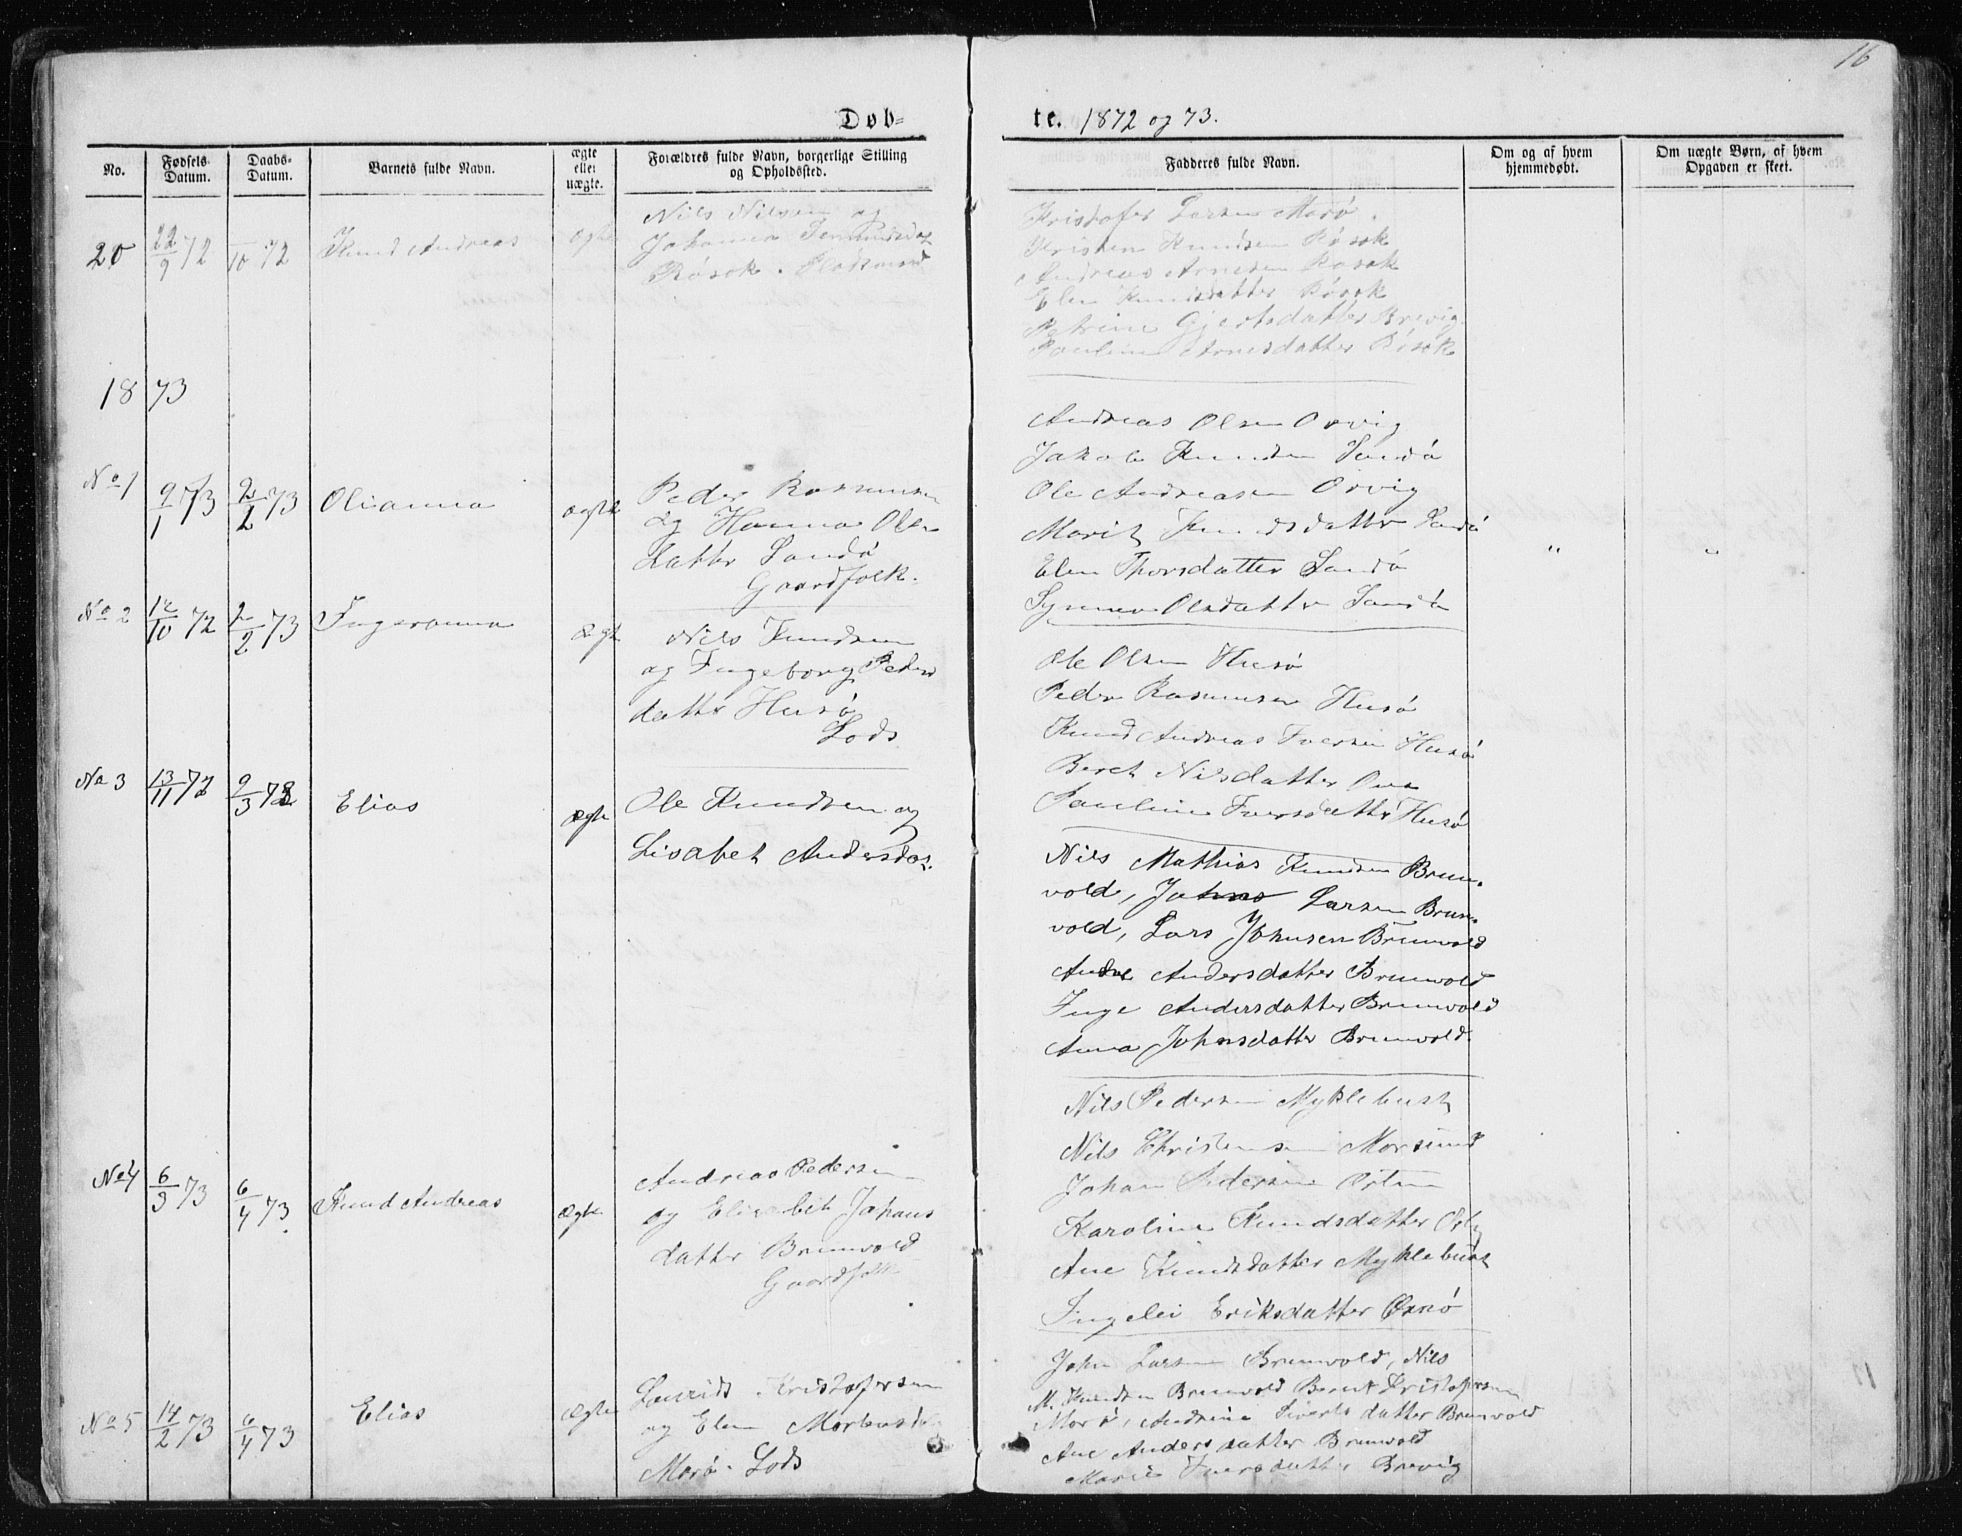 16
Døb-
te. 1872 og 73.
No.
Fødsels-
Datum.
Daabs-
Datum.
Barnets fulde Navn.
ægte
eller
uægte.
Forældres fulde Navn, borgerlige Stilling
og Opholdssted.
Fadderes fulde Navn.
Om og af hvem
hjemmedøbt.
Om uægte Børn, af hvem
Opgaven er skeet.
20
22/9 72
/10 72
Knud Andreas
ægte
Nils Nilsen og
Johanna
Røsok.
Kristofer Larsen Morø.
Kristen Knudsen Røsok
Andreas Arnesen Røsok
Elen Knudsdatter Røsok
Petrine Gjertsdatter Brevig
Pauline Arnesdatter Røsok
1873
No 1
9/1 73
2/2 73
Olianna
ægte
Peder Rasmusen
og Hanna Ols
datter Sandø
Gaardfolk.
Andreas Olsen Orvig
Jakob Knudsen Sandø
Ole Andreasen Orvig
Marit Knudsdatter Sandø
Elen Thorsdatter Sandø
Synneva Olsdatter Sandø
"
"
No 2
12/10 72
2/2 73
Ingeranna
ægte
Nils Knudsen
og Ingeborg Peders
datter Husø
Lods
Ole Olsen Husø
Peder Rasmusen Husø
Knud Andreas Iversen Husø
Beret Nilsdatter
Pauline Iversdatter Husø
No 3
13/11 72
9/3 73
Elias
ægte
Ole Knudsen og
Lisabet Andersdat.
Nils Mathias Knudsen Brun-
vold, Johns Larsen Brun-
vold, Lars Johnsen Brunvold
Andersdatter Brunvold
Inge Andersdatter Brunvold
Anna Johnsdatter Brunvold.
No 4
6/3 73
6/4 73.
Knud Andreas
ægte
Andreas Pedersen
og Elisabet Johans
datter Brunvold
Gaardfolk
Nils Pedersen Myklebust
Nils Christensen Morsund
Johan Pedersen Orten
Karoline Knudsdatter
Ane Knudsdatter Myklebust
Ingelei Eriksdatter
No 5
14/2 73
6/4 73
Elias
ægte
Laurids Kristofersen
og Elen
Morø. Lods
John Larsen Brunvold, Nils
M. Knudsen Brunvold Bernt Kristofersen
Morø, Andrine Siverts datter Brunvold
Ane Anders datter Brunvold
Marie Iversdatter Brevig